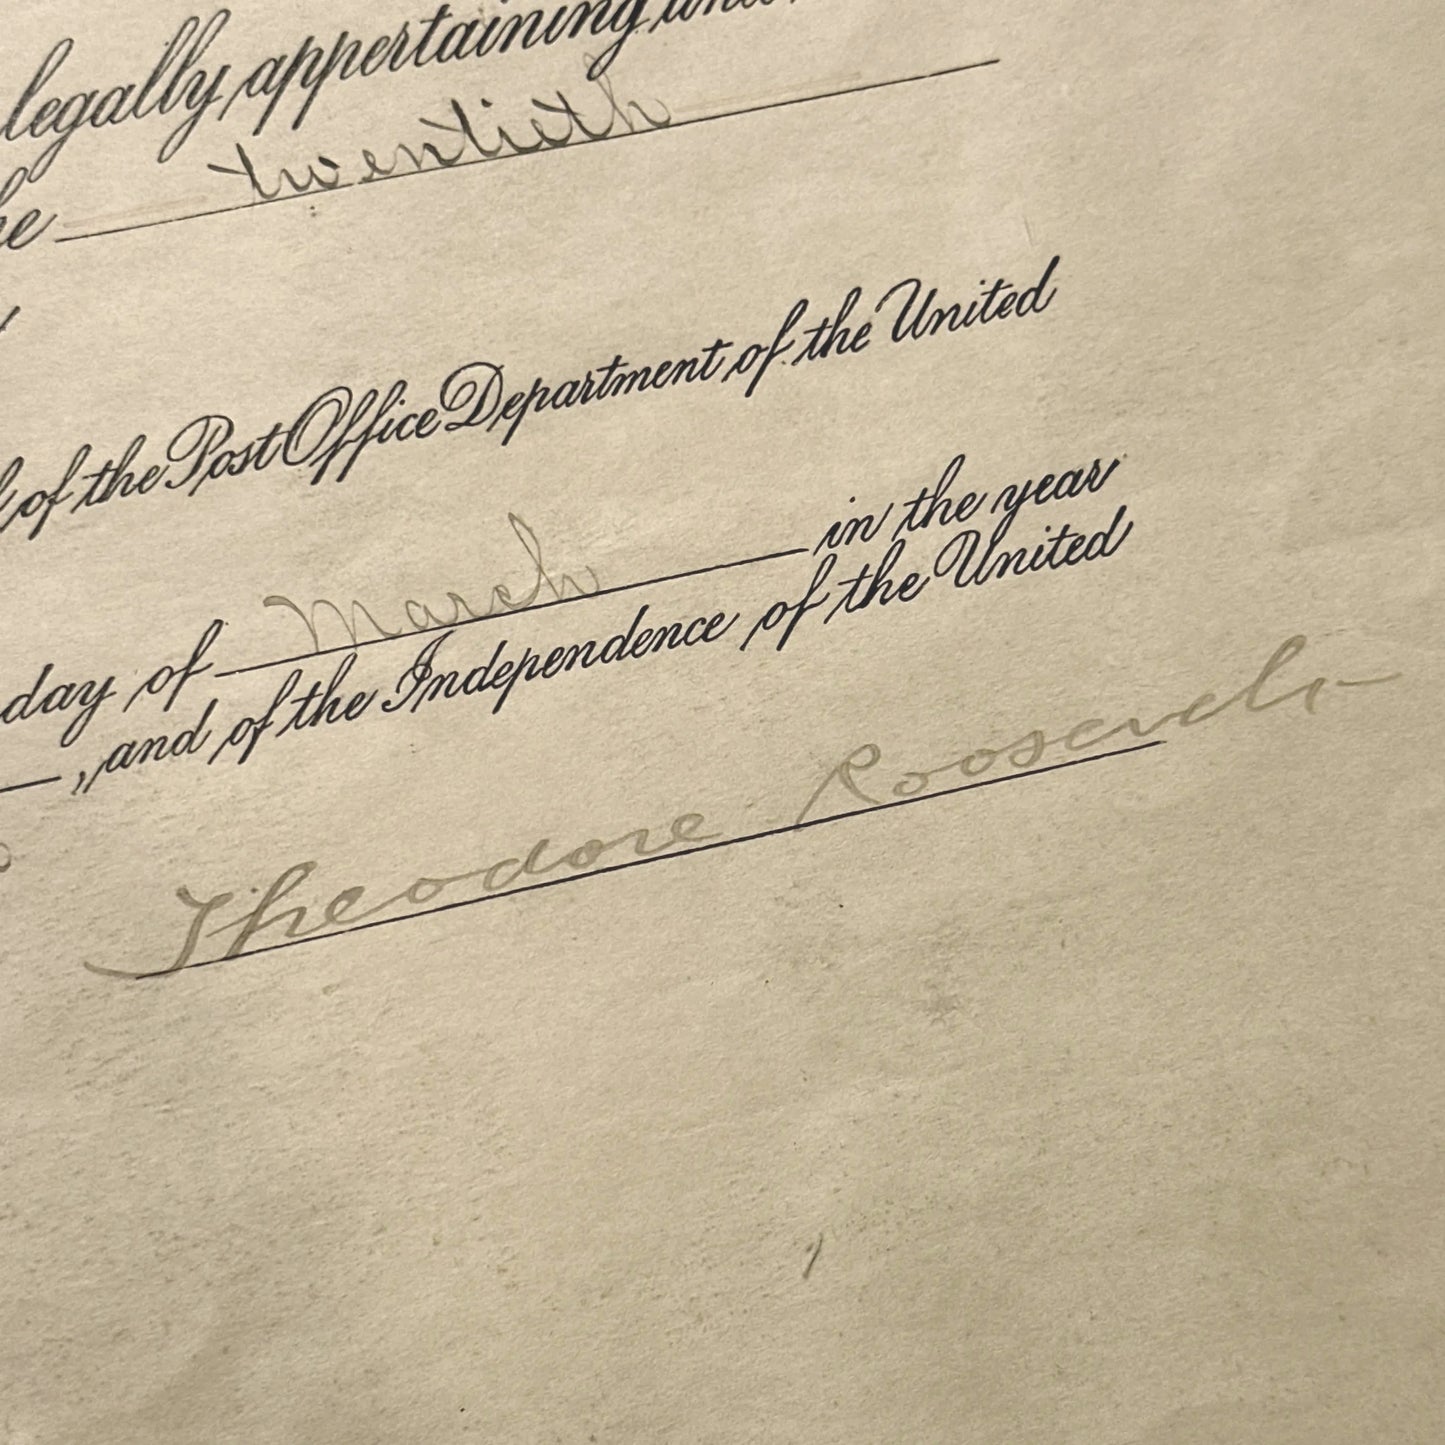 legally appertaining
twentieth
of the Post Office Department of the United
day of March in the year
, and of the Independence of the United
Theodore Roosevelt